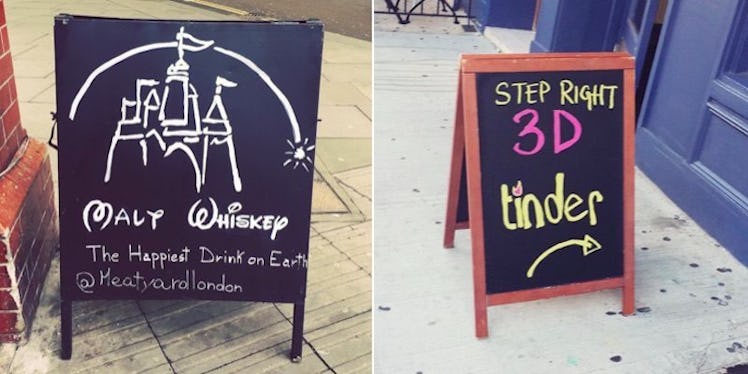 Malt Whiskey
The Happiest Drink on Earth
@Meatyardlondon
STEP RIGHT
3D
tinder